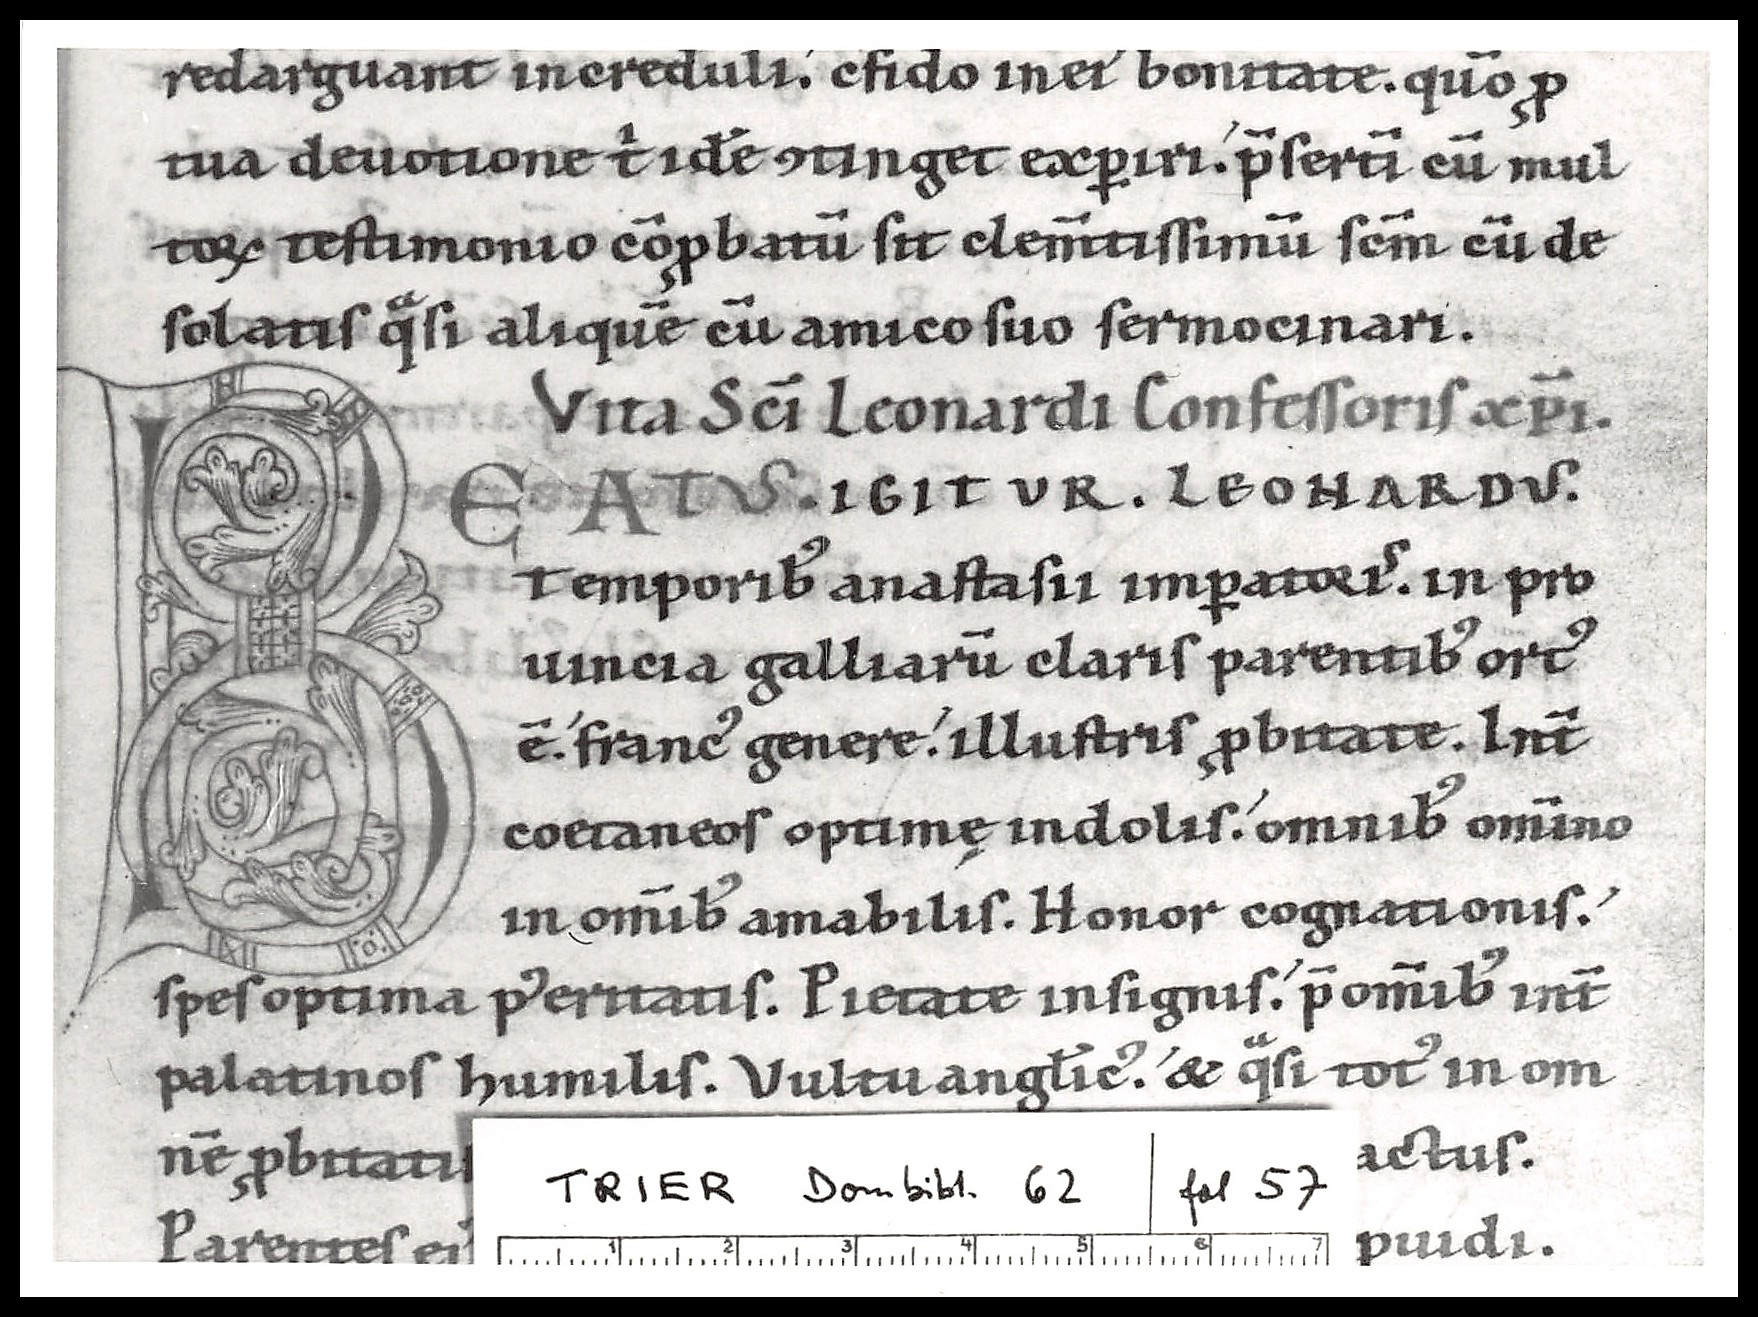 redarguant increduli. c̄fido in ei' bonitate. quō ꝓ
tua deuotione t̾ idē ꝯtinget exꝑiri. p̄sertī cū mul
toꝝ testimonio cōꝓbatū sit clem̄tissimū scm̄ cū de
solatis qͣsi aliquē cū amico suo sermocinari.
Vita Scī Leonardi Confessoris xp̄i.
BEATUS. IGITUR. LEONARDUS.
temporibꝰ anastasii imꝑatoris. in pro
uincia galliarū claris parentibꝰ ortꝰ
ē. francꝰ genere. illustris ꝓbitate. Int̄
coetaneos optimę indolis. omnibꝰ om̄ino
in om̄ibꝰ amabilis. Honor cognationis.
spes optima pꝰeritatis. Pietate insignis. p̄ om̄ibꝰ int̄
palatinos humilis. Vultu angl̄icꝰ. & qͣsi totꝰ in om
nē ꝓbitatis actus.
Parentes ei' puidi.
TRIER Dombibl. 62 fol 57
1 2 3 4 5 6 7